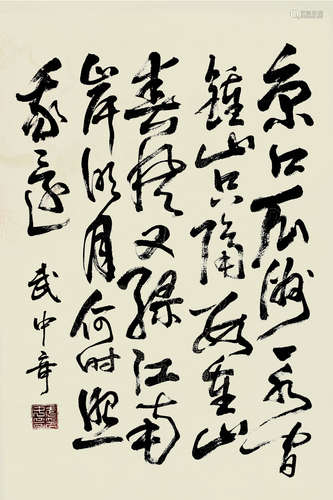 京口瓜洲一水间
鍾山只隔数重山
春风又绿江南
岸明月何时照
我还
武中奇